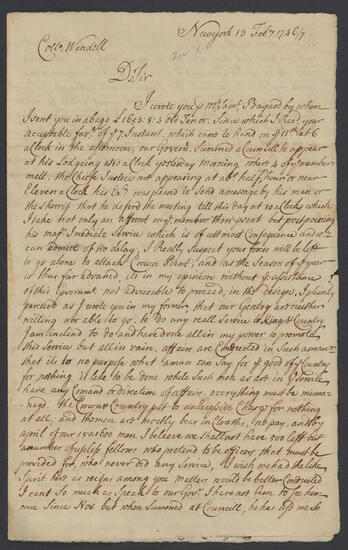 Newyork 13 Feby 1746/7
Collo. Wendell
D Sir
I wrote you ⅌ Mr Jams. Bayard by whom
I sent you in a bagg £1653:8:3 old Tenor. Since which I Reced. your
acceptable favr. of ye 7 Instant. which came to hand on ye 11th at 6
a Clock in the afternoon, our Governr. Sumoned a Councill to appear
at his Lodgeing at 10 a Clock yesterday morning, where 4 of ye members
mett. The Chieffe Justice not appearing at abt. half hour or near
Eleven a Clock his Exy. was pleased to send a message by his man or
the Sherrif that he defferd the meeting till this day at 10 a Clock which
I take not only an affront to ye members then present but postponeing
his majts. Imediate Service which is of utt most Consequence and
can admitt of no delay, I Really Suspect your forces will be left
to go alone to attack Crown Point, and as the Season of ye year
is thus far advanced, its in my opinion without ye assistance
of this Governmt. not adviceable to proceed, in the design, I plainly
perceive as I wrote you in my former, that our Gentry are neither
willing nor able to go. to do any reall Service to King & Country
I am Inclend to do and have done all in my power to promote
this Service but all in vain, affairs are Conducted in Such a manner
that its to no purpose what a man can Say for ye good of ye Country
for nothing is like to be done while Such men as are in ye Service
have any Comand or direction of affairs, everything must be misma-
nagd. the Crown & Country put to an excessive Charge for nothing
at all, and the men are mostly bear in Cloaths, no pay, and by
april of our 15 a 1600 men I believe we shall not have 500 left but
a number of usless fellows who pretend to be officers that must be
provided for, who never did any Service, I wish we had the like
Spirit here as reigns among you matters would be better Conducted
I cant So much as Speak to our Govr. I have not been to See him
once Since Novr. but when Summoned at Councill, he has used me So